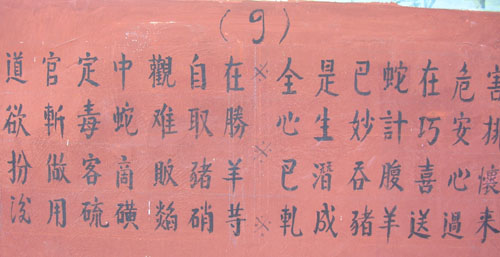 (9)
道官定中觀自在×全是巴蛇在危害
欲斬毒蛇难取勝×心生妙計巧安排
扮做客商販豬羊×巳潛吞腹喜心懷
用硫磺焰硝䓁×軋成豬羊送過来